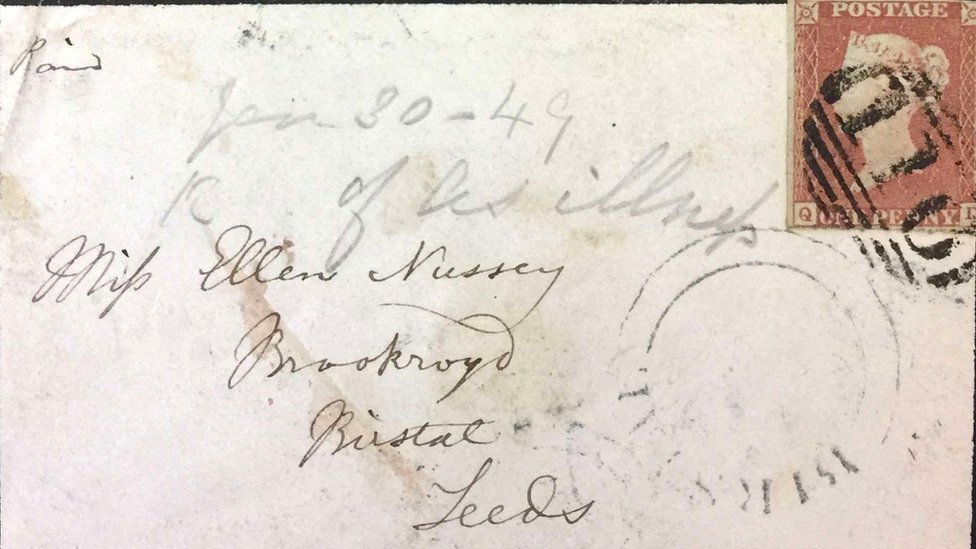 Paid
POSTAGE
Jan 30-49
of As illness
Q ONE PENNY
Miss Ellen Nussey
Brookroyd
Birstal
Leeds